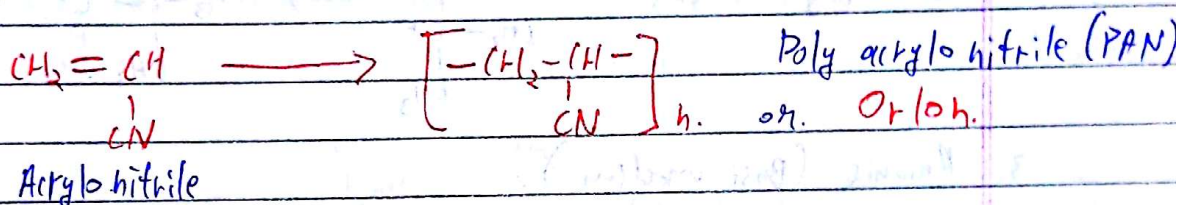 CH₂ = CH ⟶ [-CH₂-CH-]n. Poly acrylo nitrile (PAN)
CN CN or. Orlon.
Acrylo nitrile